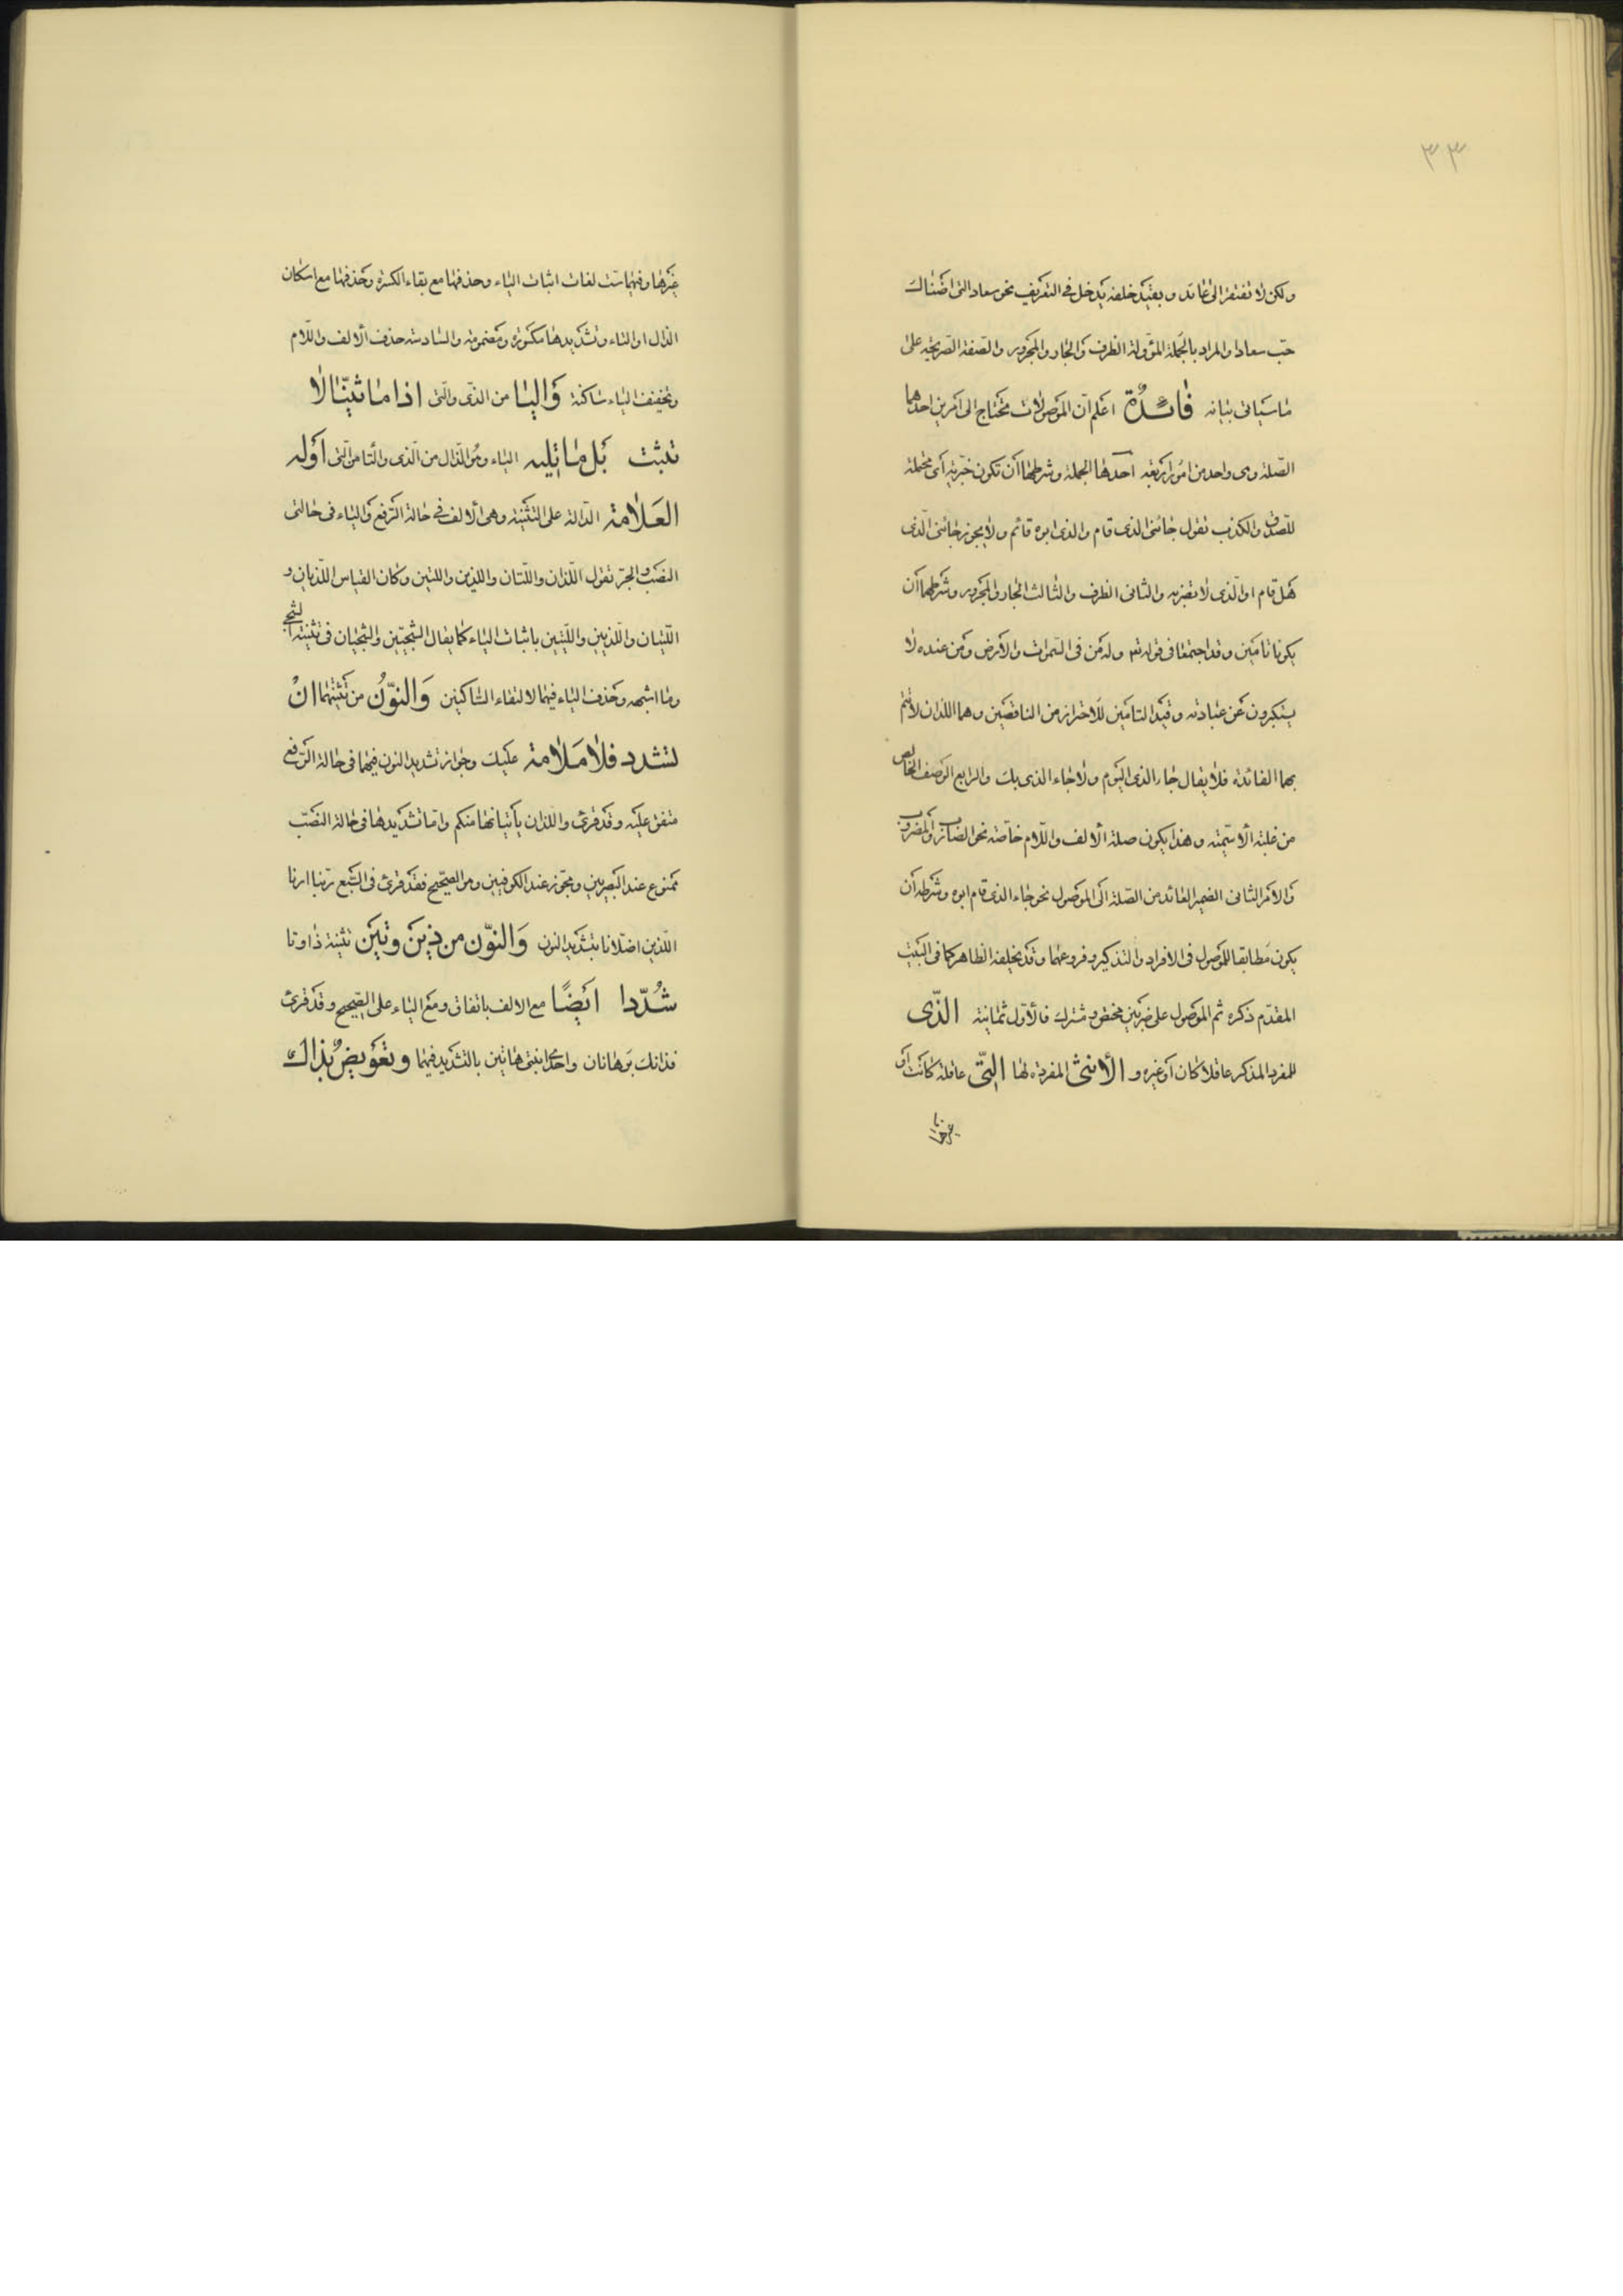 ٣٣
ولكن لا تفتقر الى عائد وبقيد خلفه يدخل فى التعريف نحو سعاد التى اضناك
حب سعادا والمراد بالجملة المؤولة الظرف والجار والمجرور والصفة الصريحة على
ما سيأتى بيانه فائدة اعلم ان الموصولات تحتاج الى امرين احدهما
الصلة وهى واحد من امور اربعة احدها الجملة وشرطها أن تكون خبرية أى محتملة
للصدق والكذب تقول جائنى الذى قام والذى ابوه قائم ولا يجوز جائنى الذى
هل قام او الذى لا تضربه والثانى الظرف والثالث الجار والمجرور وشرطهما أن
يكونا تامين وقد اجتمعا فى قوله تع وله من فى السموات والارض ومن عنده لا
يستكبرون عن عبادته وقيد التامين للاحتراز من الناقصين وهما اللذان لا تتم
بهما الفائدة فلا يقال جاء الذى اليوم ولا جاء الذى بك والرابع الوصف الخالص
من غلبة الاسمية وهذا يكون صلة الالف واللام خاصة نحو الضارب والمضروب
والامر الثانى الضمير العائد من الصلة الى الموصول نحو جاء الذى قام ابوه وشرطه أن
يكون مطابقا للموصول فى الافراد والتذكير وفروعهما وقد يخلفه الظاهر كما فى البيت
المقدم ذكره ثم الموصول على ضربين مختص ومشترك فالأول ثمانية الذى
للمفرد المذكر عاقلا كان أو غيره و الأنثى المفردة لها التى عاقلة كانت او
غيرها
غيرها وفيهما ست لغات اثبات الياء وحذفها مع بقاء الكسرة وحذفها مع اسكان
الذال او التاء وتشديدها مكسورة ومضمومة والسادسة حذف الالف واللام
وتخفيف الياء ساكنة واليا من الذى والتى اذا ما ثنيا لا
تثبت بل ما تليه الياء وهو الذال من الذى والتا من التى أوله
العلامة الدالة على التثنية وهى الالف فى حالة الرفع والياء فى حالتى
النصب والجر تقول اللذان واللتان واللذين واللتين وكان القياس اللذيان و
اللتيان واللذيين واللتيين باثبات الياء كما يقال الشجيين والشجيان فى تثنية الشجى
وما اشبهه وحذف الياء فيهما لالتقاء الساكنين والنون من تثنيتهما ان
تشدد فلا ملامة عليك وجواز تشديد النون فيهما فى حالة الرفع
متفق عليه وقد قرئ واللذان يأتيانها منكم واما تشديدها فى حالة النصب
ممنوع عند البصريين ومجوز عند الكوفيين وهو الصحيح فقد قرئ فى السبع ربنا ارنا
اللذين اضلانا بتشديد النون والنون من ذين وتين تثنية ذا وتا
شددا ايضا مع الالف باتفاق ومع الياء على الصحيح وقد قرئ
فذانك برهانان واحدى ابنتى هاتين بالتشديد فيهما وتعويض بذاك